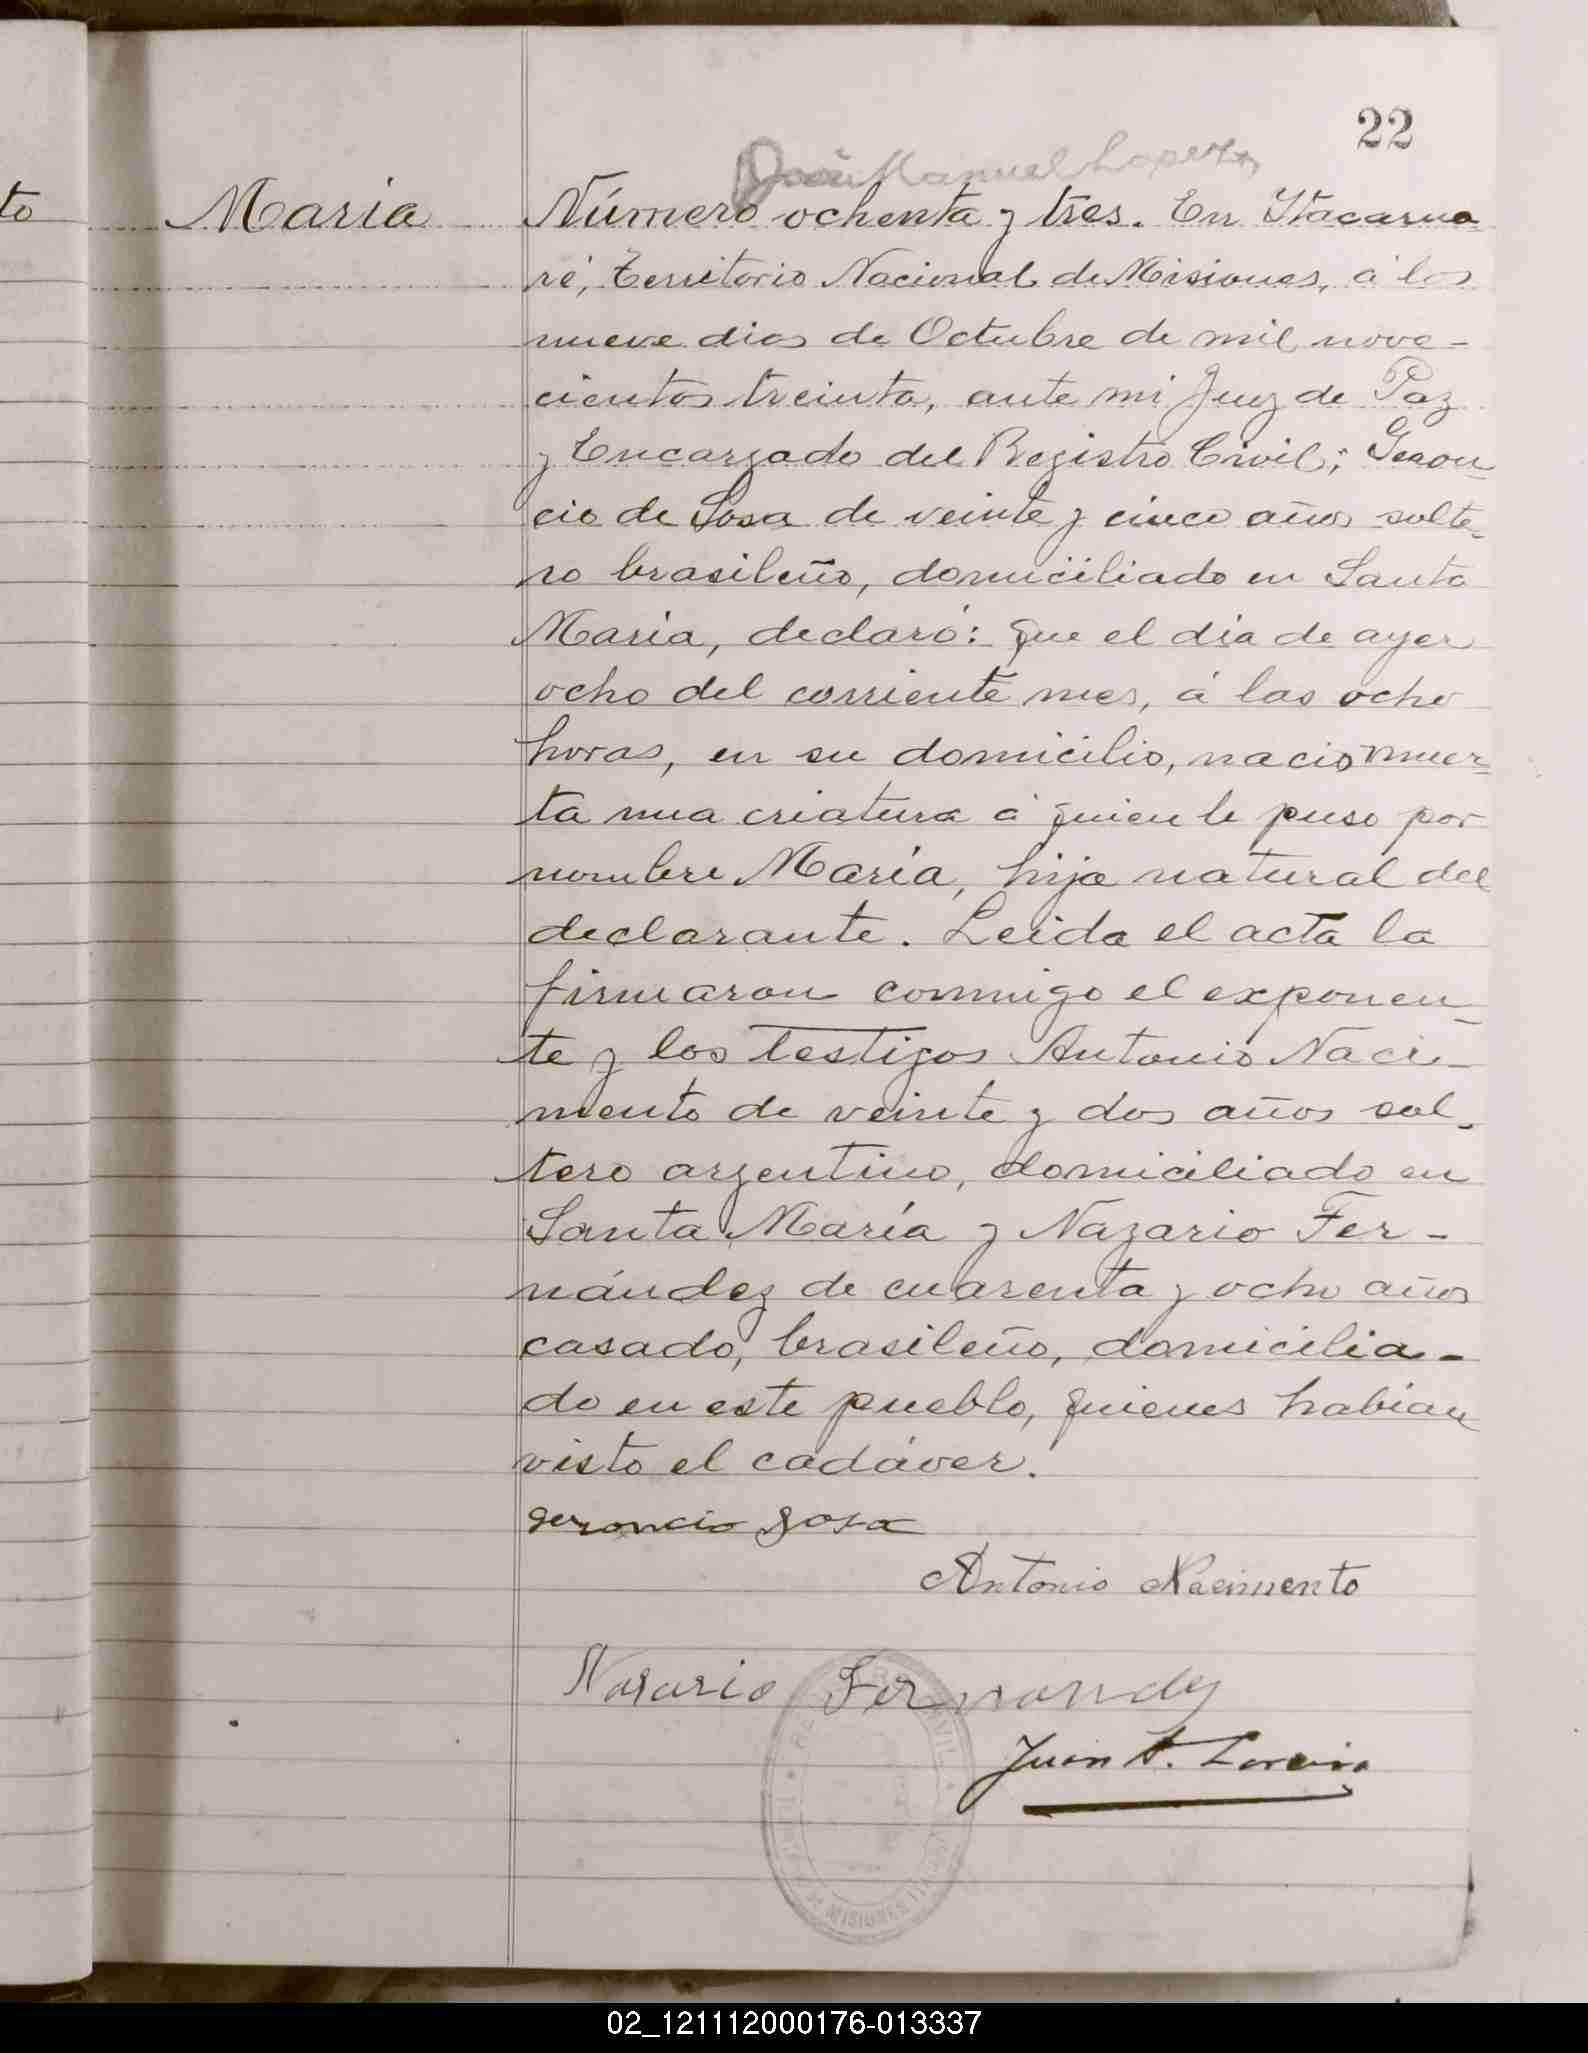 22
Manuel Lopez
to
Maria
Número ochenta y tres. En Itacarua
ré, Territorio Nacional de Misiones, á los
nueve dias de Octubre de mil nove-
cientos treinta, ante mi Juez de Paz
y Encargado del Registro Civil; Geron-
cio de Sosa de veinte y cinco años solte-
ro brasileño, domiciliado en Santa
Maria, declaró: Que el dia de ayer
ocho del corriente mes, á las ocho
horas, en su domicilio, nacio muer-
ta una criatura á quien le puso por
nombre María, hija natural del
declarante. Leida el acta la
firmaron conmigo el exponen-
te y los testigos Antonio Naci-
mento de veinte y dos años sol-
tero argentino, domiciliado en
Santa María y Nazario Fer-
nández de cuarenta y ocho años
casado, brasileño, domicilia-
do en este pueblo, quienes habian
visto el cadáver.
geroncio gosa
Antonio Nacimento
Nasario Fernandez
Juan A.
MISIONES
02_121112000176-013337